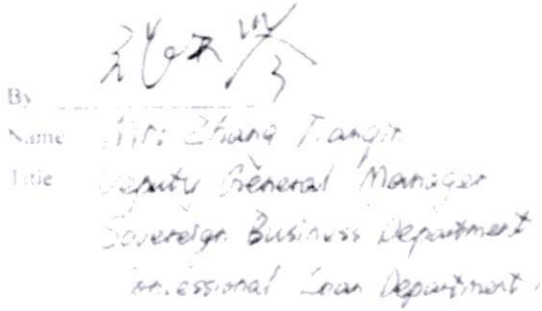 By
Name Mr. Zhang Tianqin
Title Deputy General Manager
Sovereign Business Department
Concessional Loan Department.